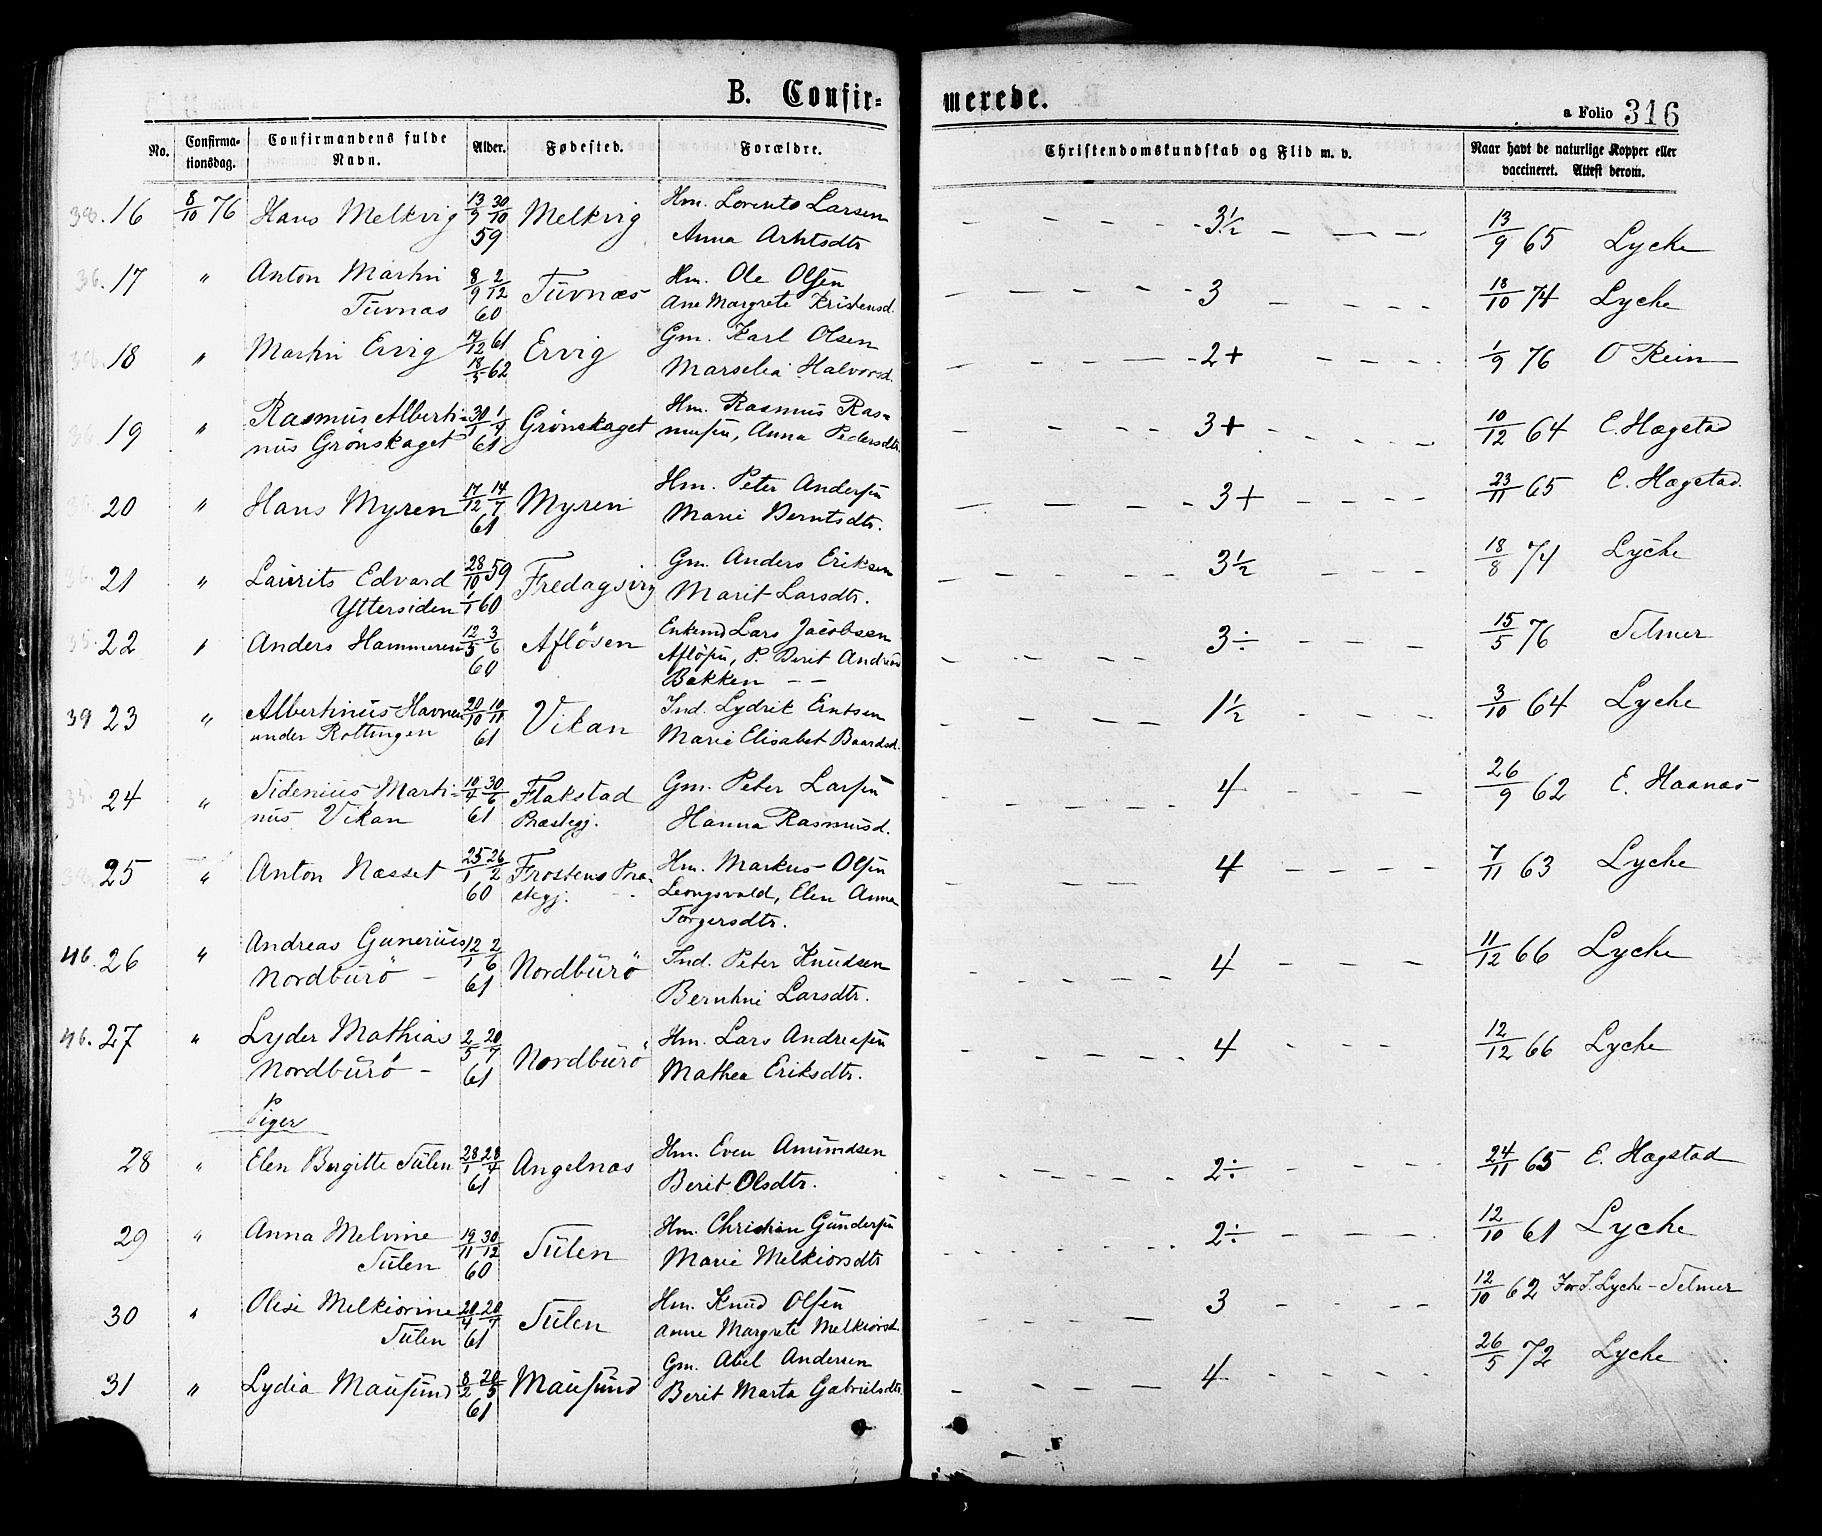 B. Confir-
merede.
a Folio 316
No.
Confirma-
tionsdag.
Confirmandens fulde
Navn.
Alder.
Fødested.
Forældre.
Christendomskundskab og Flid m. v.
Naar havt de naturlige Kopper eller
vaccineret. Attest derom.
16 8/10 76 Hans Melkvig 13/9 30/10 59 Melkvig Hm. Lorents Larsen
Anna Arntsdtr
3½ 13/9 65 Lycke
36. 17 " Anton Martin
Tuvnæs 8/9 2/12 60 Tuvnæs Hm. Ole Olsen
Ane Margrete Kristensd.
3 18/10 74 Lyche
18 " Martin Ervig 17/12 61 18/5 62 Ervig Gm. Karl Olsen
Marselia Halvorsd.
2+ 1/9 76 O Rein
36 19 " Rasmus Alberti-
nus Grönskaget 30/1 1/4 61 Grönskaget Hm. Rasmus Ras-
musen, Anna Pedersdtr.
3+ 10/12 64 E. Hægstad
20 " Hans Myren 17/12 14/7 61 Myren Hm. Peter Andersen
Marie Berntsdtr.
3+ 23/11 65 E. Hægstad.
21 " Laurits Edvard
Yttersiden 28/10 59 1/1 60 Fredagsvig Gm. Anders Eriksen
Marit Larsdtr.
3½ 18/8 74 Lyche
35. 22 " Anders Hammeren 12/5 3/6 60 Aflösen Enkemd Lars Jacobsen
Aflösen, P. Berit Andrea
Bakken – –
3÷ 15/5 76 Selmer
39 23 " Albertinus Havnen
under Rottingen 20/10 10/11 61 Vikan Ind. Lydrik Erntsen
Marie Elisabet Baardsd.
1½ 3/10 64 Lyche
24 " Sidenius Marti-
nus Vikan 10/4 30/6 61 Flakstad
Præstegj. Gm. Peter Larsen
Hanna Rasmusd.
4 26/9 62 E. Haanæs
25 " Anton Næsset 25/1 26/2 60 Frostens Præ-
stegj. Hm. Markus Olsen
Leongsvold, Elen Anna
Torgersdtr.
4 7/11 63 Lyche
46. 26 " Andreas Gunerius
Nordbürö – 12/1 2/6 61 Nordbürö Ind. Peter Knudsen
Berntine Larsdtr.
4 11/12 66 Lyche
46. 27 " Lyder Mathias
Nordbürö – 2/5 20/7 61 Nordbürö Hm. Lars Andreasen
Mathea Eriksdtr.
4 12/12 66 Lyche
Piger
28 " Elen Bergitte Sülen 28/1 28/4 61 Angelnæs Hm. Even Amundsen
Berit Olsdtr.
2÷ 24/11 65 E. Hægstad
29 " Anna Melvine
Sülen 19/11 30/12 60 Sülen Hm. Christian Gundersen
Marie Melkiorsdtr
2÷ 12/10 61 Lyche
30 " Olise Melkiorine
Sülen 20/4 20/7 61 Sülen Hm. Knud Olsen
Anne Margrete Melkiorsd.
3 12/10 62 For J. Lyche – Selmer
31 " Lydia Mausund 8/2 20/5 61 Mausund Gm. Abel Andersen
Berit Marta Gabrielsdtr.
4 26/5 72 Lyche